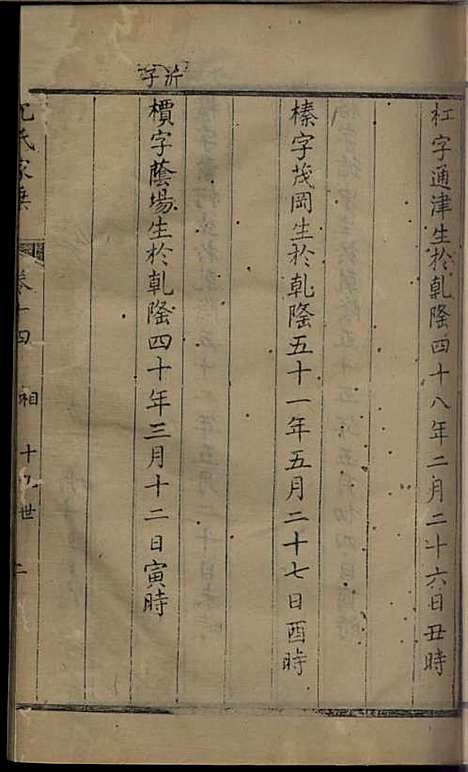 杠字通津生於乾隆四十八年二月二十六日丑時
榛字茂岡生於乾隆五十一年五月二十七日酉時
檟字蔭場生於乾隆四十年三月十二日寅時
氏家乘
卷十四
相
世